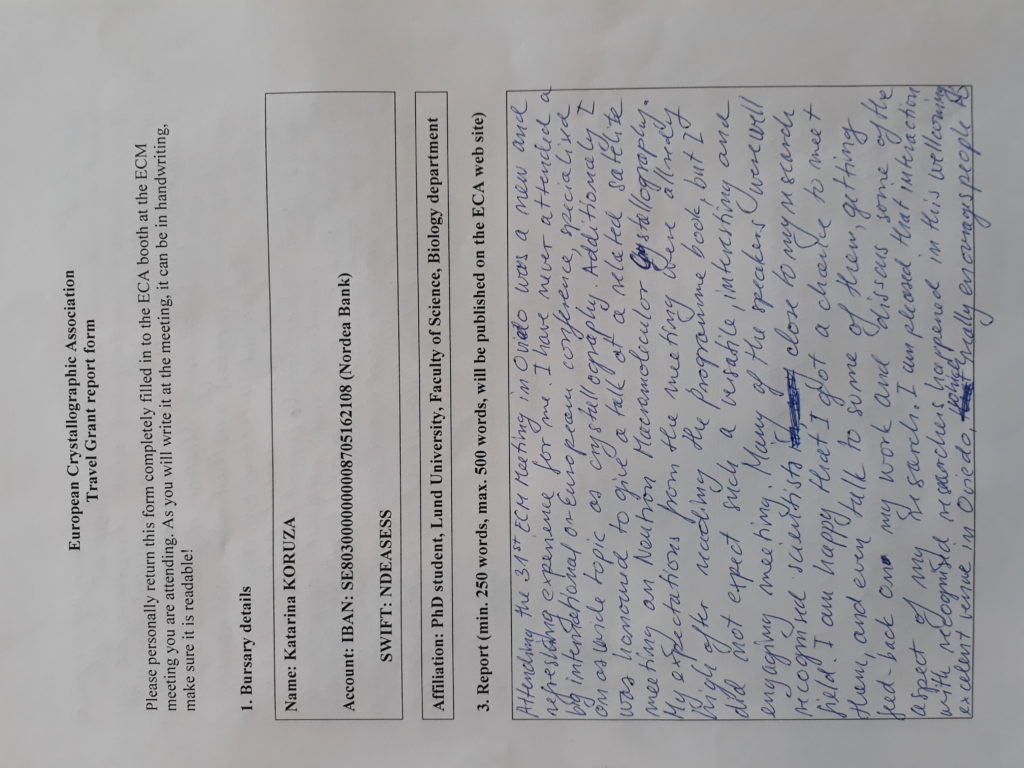 European Crystallographic Association
Travel Grant report form
Please personally return this form completely filled in to the ECA booth at the ECM
meeting you are attending. As you will write it at the meeting, it can be in handwriting,
make sure it is readable!
1. Bursary details
Name: Katarina KORUZA
Account: IBAN: SE8030000000008705162108 (Nordea Bank)
SWIFT: NDEASESS
Affiliation: PhD student, Lund University, Faculty of Science, Biology department
3. Report (min. 250 words, max. 500 words, will be published on the ECA web site)
Attending the 31st ECM Meeting in Oviedo was a new and
refreshing experience for me. I have never attended a
big international or european conference specialised
on as wide topic as crystallography. Additionally I
was honoured to give a talk at a related satelite
meeting on Neutron Macromolecular Crystallography.
My expectations from the meeting were allready
high after reading the programme book, but I
did not expect such a versatile, interesting and
engaging meeting. Many of the speakers were well
recognised scientists close to my research
field. I am happy that I got a chance to meet
them, and even talk to some of them, getting
feed-back on my work and discuss some of the
aspect of my research. I am pleased that interaction
with recognised researchers happened in this wellcoming
excelent venue in Oviedo, equally encouraging people